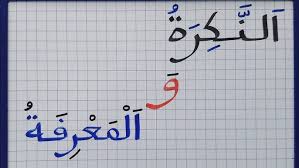 اَلنَّكِرَةُ
وَ
اَلْمَعْرِفَةُ